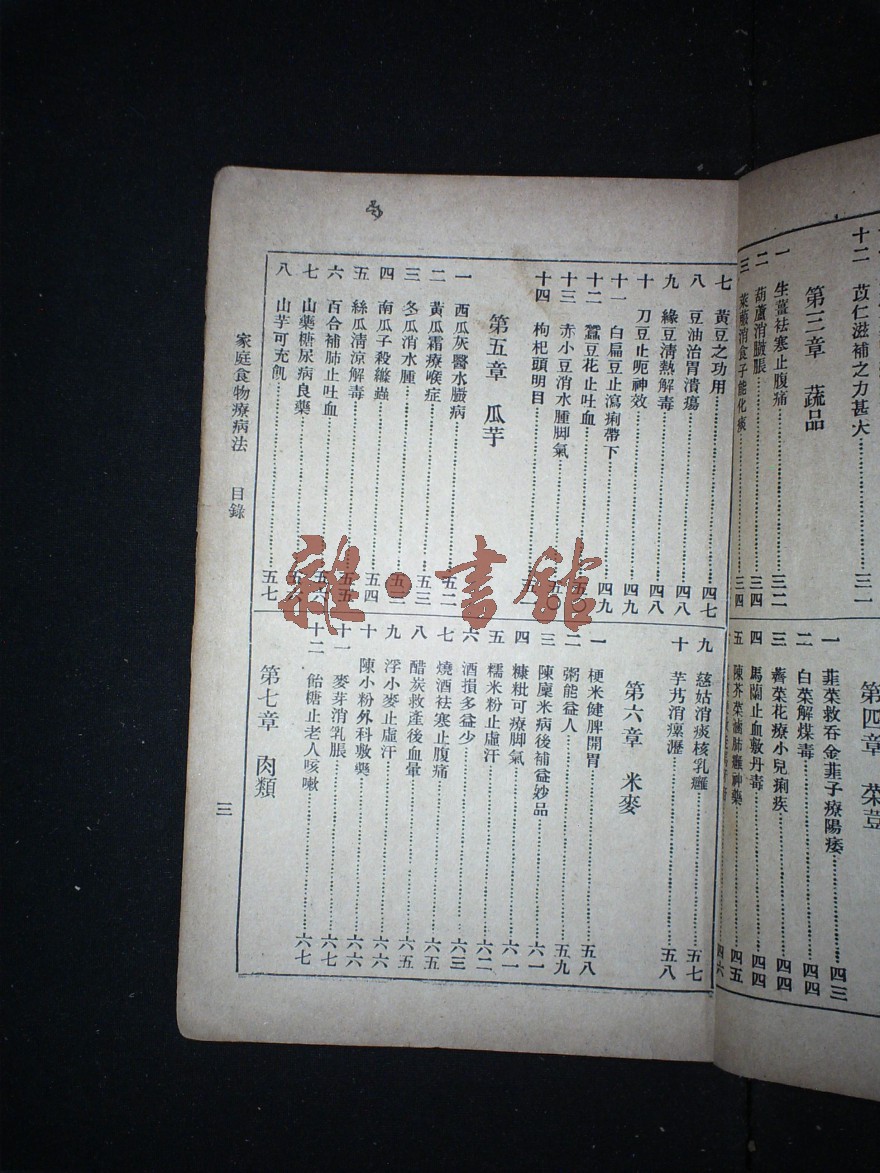 十二 苡仁滋補之力甚大 三二
第三章 蔬品
一 生薑祛寒止腹痛 三二
二 葫蘆消臌脹 三四
三 萊菔消食子能化痰 三四
第四章 菜荳
一 韮菜救吞金韮子療陽痿 四三
二 白菜解煤毒 四四
三 薺菜花療小兒痢疾 四四
四 馬蘭止血敷丹毒 四四
五 陳芥菜滷肺癰神藥 四五
四六
七 黃豆之功用 四七
八 豆油治胃潰瘍 四八
九 綠豆清熱解毒 四八
十 刀豆止呃神效 四九
十一 白扁豆止瀉痢帶下 四九
十二 蠶豆花止吐血 五〇
十三 赤小豆消水腫脚氣 五〇
十四 枸杞頭明目
第五章 瓜芋
一 西瓜灰醫水臌病 五二
二 黃瓜霜療喉症 五三
三 冬瓜消水腫 五三
四 南瓜子殺縧蟲 五四
五 絲瓜清涼解毒 五五
六 百合補肺止吐血
七 山藥糖尿病良藥
八 山芋可充飢 五七
九 慈姑消痰核乳癰 五七
十 芋艿消瘰瀝 五八
第六章 米麥
一 梗米健脾開胃 五八
二 粥能益人 五九
三 陳廩米病後補益妙品 六一
四 糠粃可療脚氣 六一
五 糯米粉止虛汗 六二
六 酒損多益少 六三
七 燒酒祛寒止腹痛 六五
八 醋炭救產後血暈 六五
九 浮小麥止虛汗 六六
十 陳小粉外科敷藥 六六
十一 麥芽消乳脹 六七
十二 飴糖止老人咳嗽 六七
第七章 肉類
家庭食物療病法 目錄
三
雜·書館